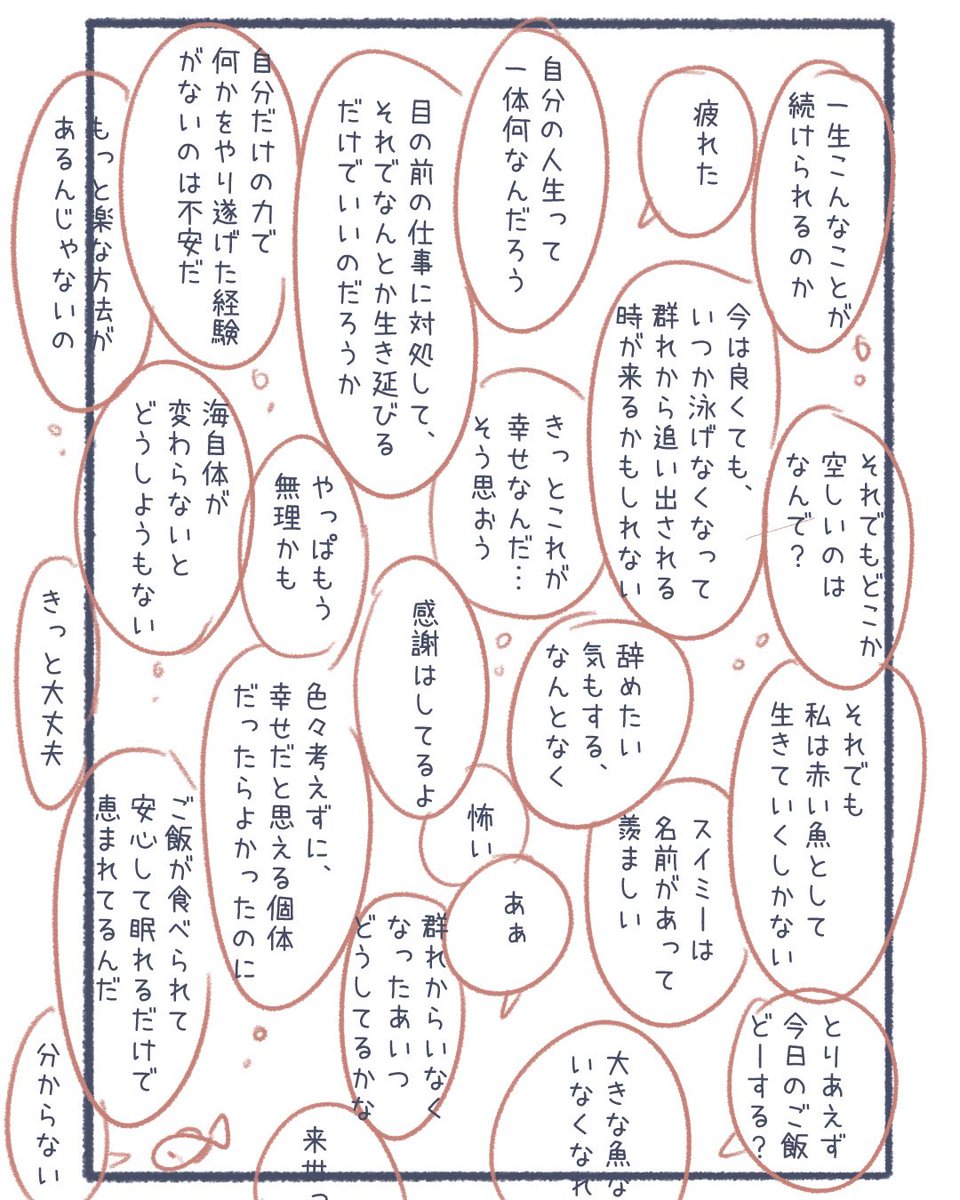 一生こんなことが
続けられるのか
疲れた
自分の人生って
一体何なんだろう
目の前の仕事に対処して、
それでなんとか生き延びる
だけでいいのだろうか
自分だけの力で
何かをやり遂げた経験
がないのは不安だ
もっと楽な方法が
あるんじゃないの
今は良くても、
いつか泳げなくなって
群れから追い出される
時が来るかもしれない
それでもどこか
空しいのは
なんで？
きっとこれが
幸せなんだ…
そう思おう
やっぱもう
無理かも
海自体が
変わらないと
どうしようもない
きっと大丈夫
それでも
私は赤い魚として
生きていくしかない
辞めたい
気もする、
なんとなく
感謝はしてるよ
色々考えずに、
幸せだと思える個体
だったらよかったのに
スイミーは
名前があって
羨ましい
怖い
あぁ
ご飯が食べられて
安心して眠れるだけで
恵まれてるんだ
群れからいなく
なったあいつ
どうしてるかな
とりあえず
今日のご飯
どーする？
大きな魚な
いなくなれ
来世
分からない